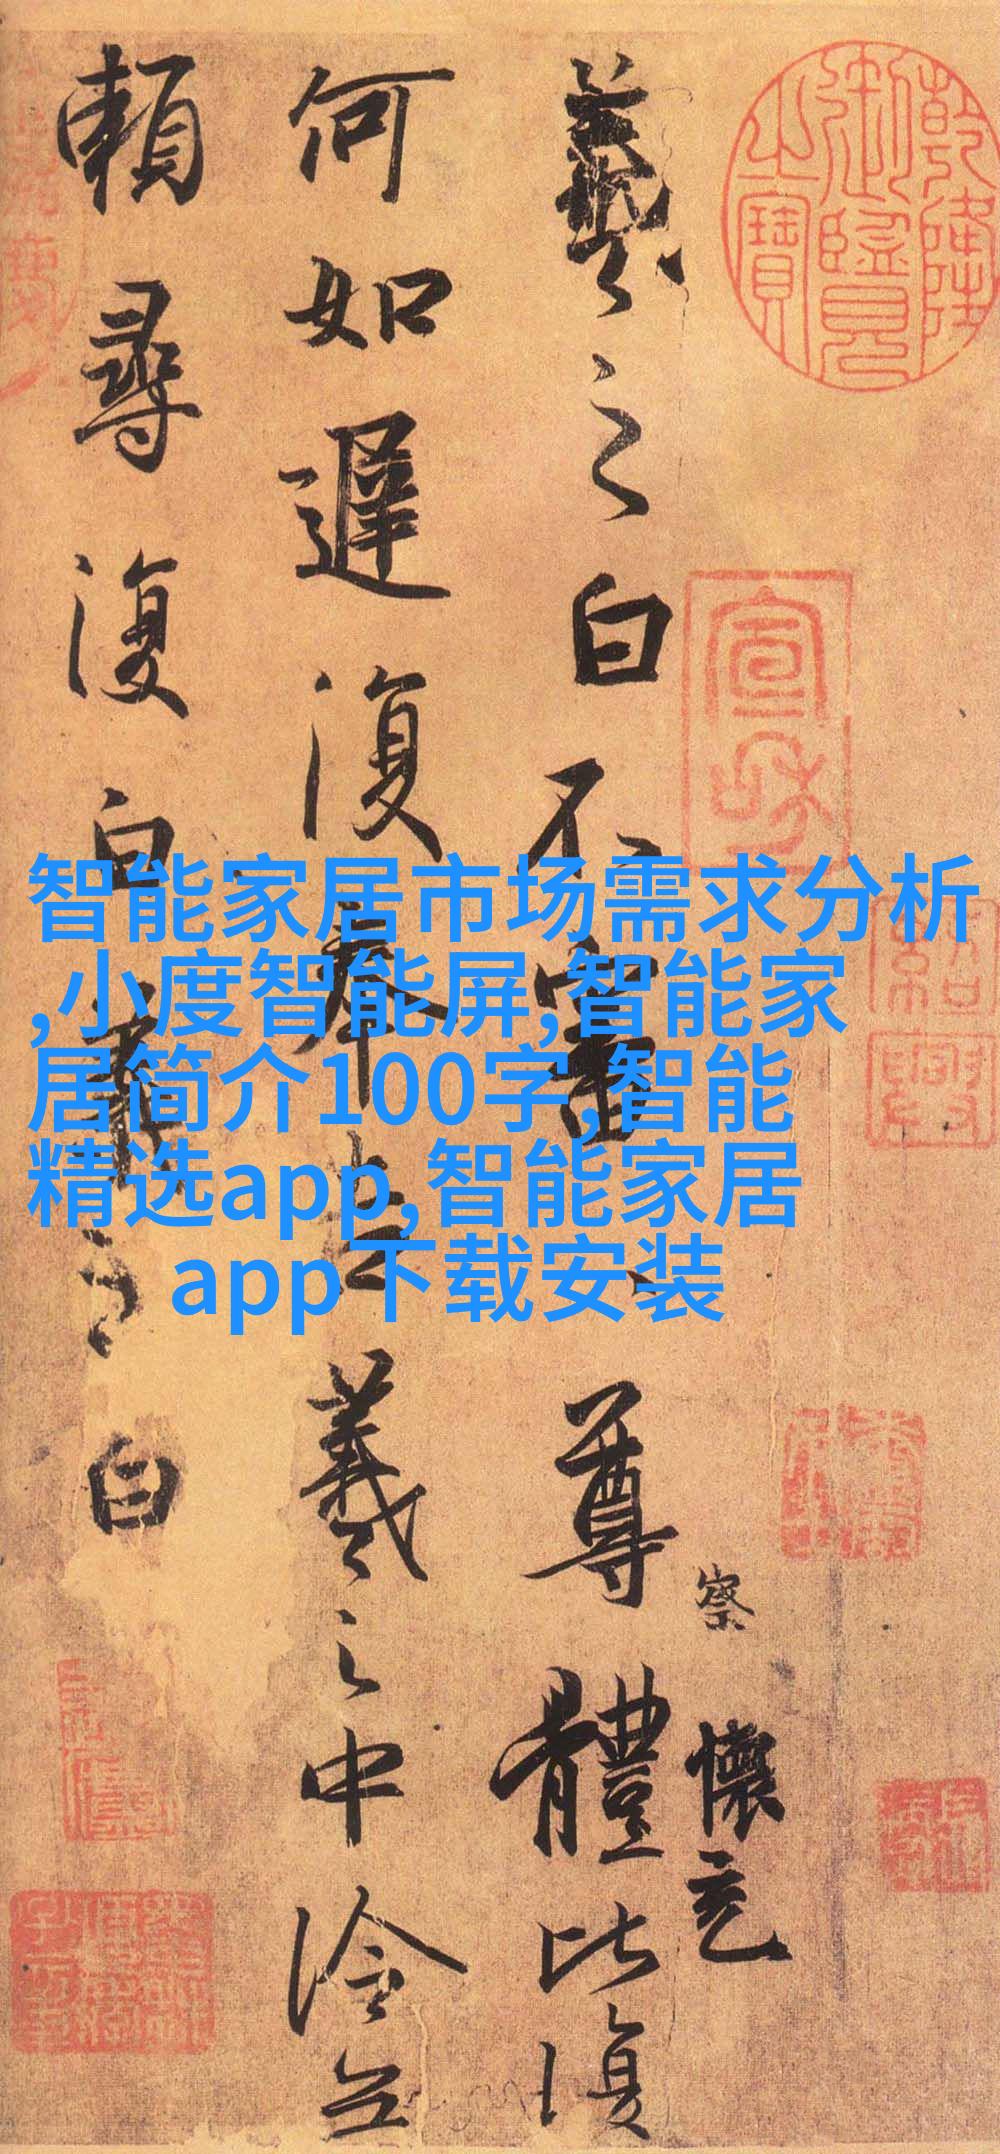 乾隆御覽之寶
宣和
紹興
察
懷充
羲之白不審尊體比復
何如遲復奉告羲之中冷無
賴尋復白羲之白
智能家居市场需求分析
,小度智能屏,智能家
居简介100字,智能
精选app,智能家居
app下载安装